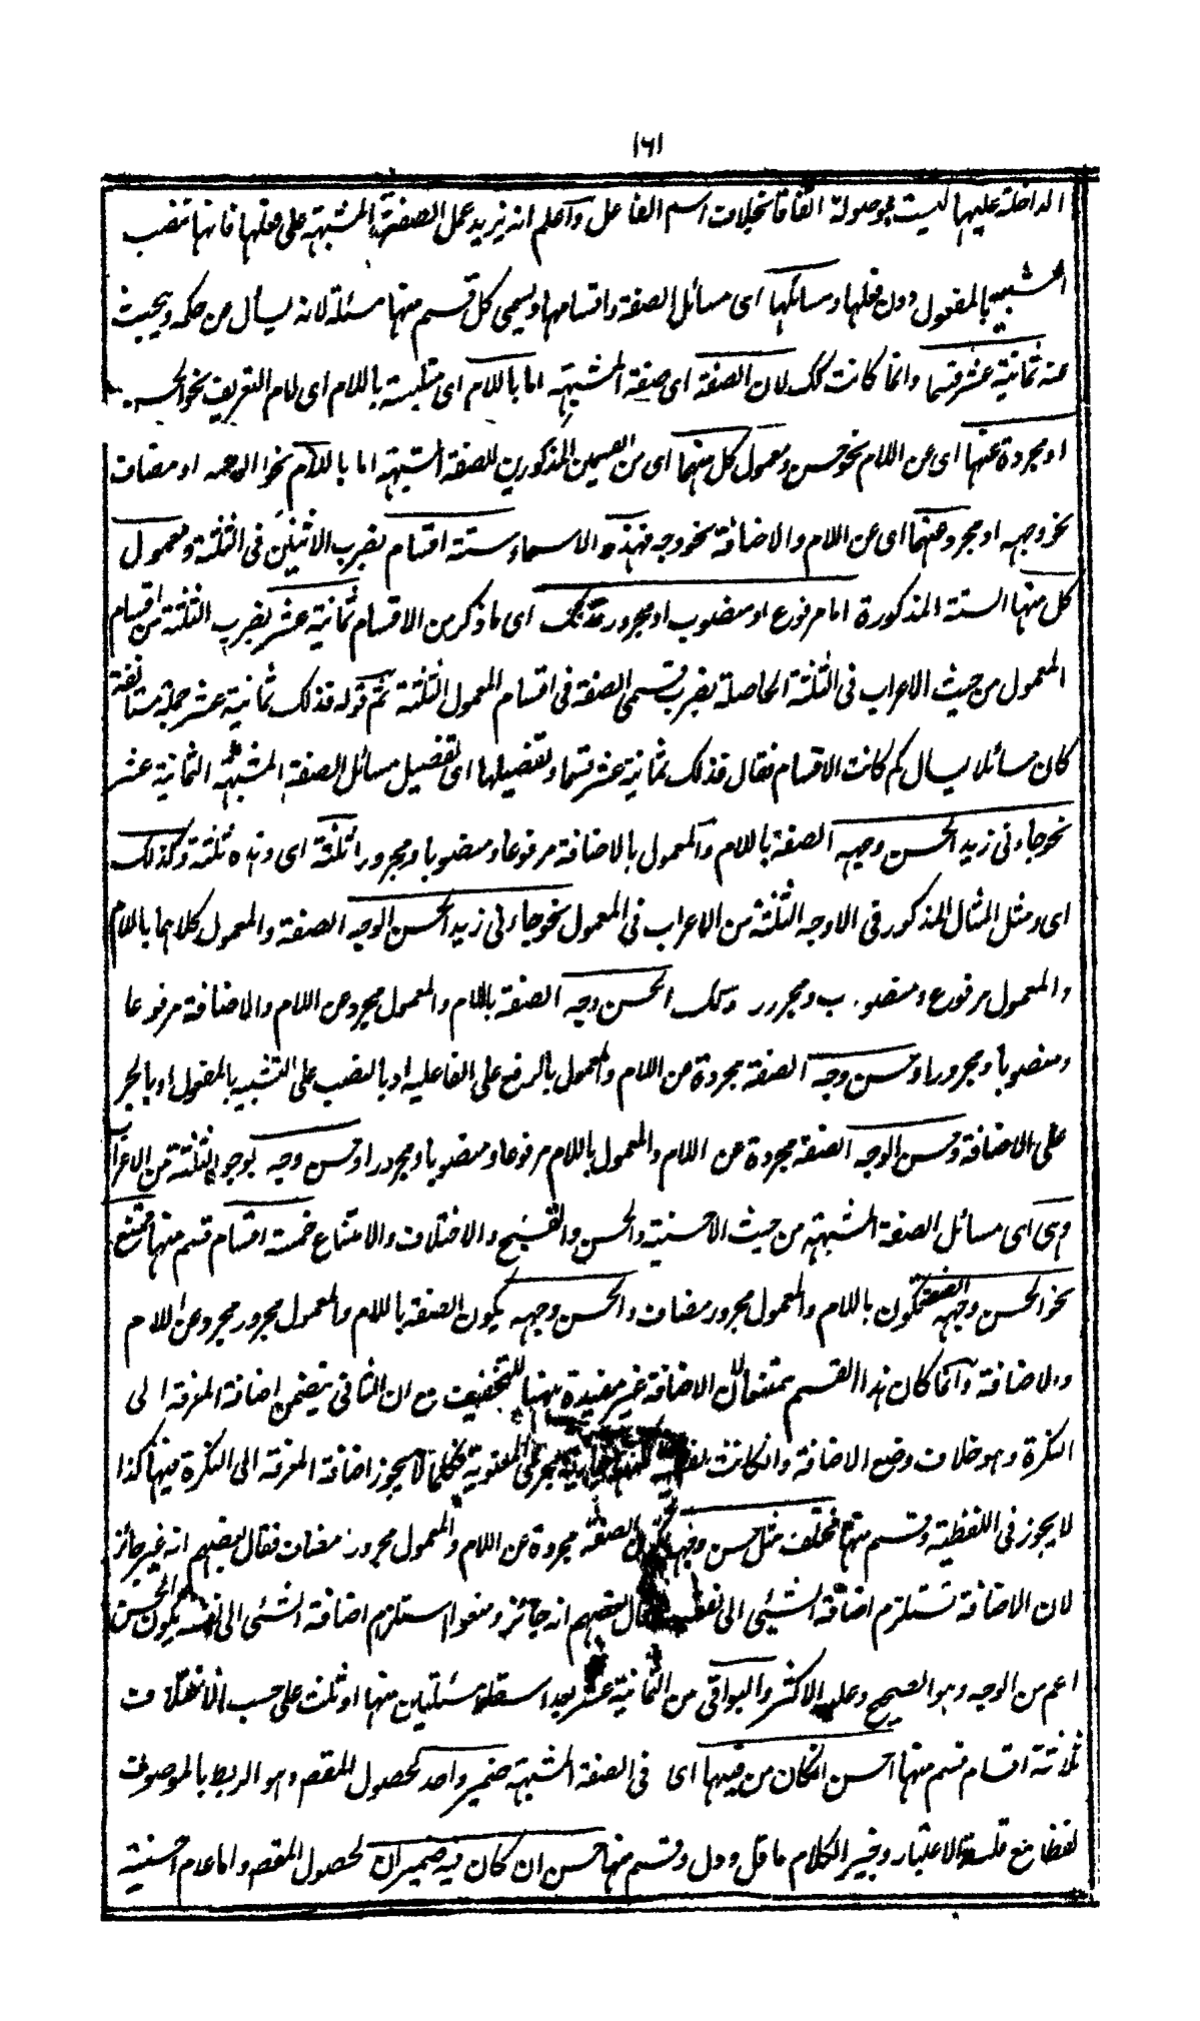 ۱۶۱
الداخلة عليها ليست بموصولة اتفاقا بخلاف اسم الفاعل واعلم انه يزيد عمل الصفة المشبهة على فعلها فانها تنصب
الشبيه بالمفعول دون فعلها ومسائلها اى مسائل الصفة واقسامها ويسمى كل قسم منها مسئلة لانه يسأل عن حكمه ويبحث
عنه ثمانية عشر قسما وانما كانت كك لان الصفة اى صفة المشبهة اما باللام اى متلبسة باللام اى لام التعريف نحو الحسن
او مجردة عنها اى عن اللام نحو حسن ومعمول كل منهما اى من القسمين المذكورين للصفة المشبهة اما باللام نحو الوجه او مضاف
نحو وجهه او مجرد عنهما اى عن اللام والاضافة نحو وجه فهذه الاسماء ستة اقسام بضرب الاثنين فى الثلثة ومعمول
كل منها الستة المذكورة اما مرفوع او منصوب او مجرور فتلك اى ما ذكر من الاقسام ثمانية عشر بضرب الثلثة من اقسام
المعمول من حيث الاعراب فى الثلثة الحاصلة بضرب قسمى الصفة فى اقسام المعمول الثلثة ثم قوله فذلك ثمانية عشر جملة مستانفة
كان سائلا يسال كم كانت الاقسام فقال فذلك ثمانية عشر قسما وتفصيلها اى تفصيل مسائل الصفة المشبهة الثمانية عشر
نحو جاءنى زيد الحسن وجهه الصفة باللام والمعمول بالاضافة مرفوعا ومنصوبا ومجرورا ثلثة اى وهذه ثلثة وكذلك
اى ومثل المثال المذكور فى الاوجه الثلثة من الاعراب فى المعمول نحو جاءنى زيد الحسن الوجه الصفة والمعمول كلاهما باللام
والمعمول مرفوع ومنصوب ومجرور وكك الحسن وجه الصفة باللام والمعمول مجرد عن اللام والاضافة مرفوعا
ومنصوبا ومجرورا وحسن وجهه الصفة مجردة عن اللام والمعمول بالرفع على الفاعلية او بالنصب على التشبيه بالمفعول او بالجر
على الاضافة وحسن الوجه الصفة مجردة عن اللام والمعمول باللام مرفوعا ومنصوبا ومجرورا وحسن وجه بوجوه الثلثة من الاعراب
وهى اى مسائل الصفة المشبهة من حيث الاحسنية والحسن والقبيح والاختلاف والامتناع خمسة اقسام قسم منها ممتنع
نحو الحسن وجهه الصفة تكون باللام والمعمول مجرور مضاف والحسن وجهه يكون الصفة باللام والمعمول مجرور مجرد عن اللام
والاضافة وانما كان هذا القسم ممتنعا لان الاضافة غير مفيدة ههنا للتخفيف مع ان الثانى يتضمن اضافة المعرفة الى
النكرة وهو خلاف وضع الاضافة وان كانت لفظية لكنها مجرى المعنوية فكما لا يجوز اضافة المعرفة الى النكرة فيها كذا
لا يجوز فى اللفظية وقسم منها مختلف مثل حسن وجهه يكون الصفة مجردة عن اللام والمعمول مجرور مضاف فقال بعضهم انه غير جائز
لان الاضافة تستلزم اضافة الشيئ الى نفسه وقال بعضهم انه جائز ومنعوا استلزام اضافة الشئ الى نفسه يكون الحسن
اعم من الوجه وهو الصحيح وعليه الاكثر والبواقى من الثمانية عشر بعد اسقاط مسئلتين منها او ثلث على حسب الاختلاف
ثلاثة اقسام قسم منها احسن انكان من فيها اى فى الصفة المشبهة ضمير واحد لحصول المقصـ وهو الربط بالموصوف
لفظا مع قلة الاعتبار وخير الكلام ما قل ودل وقسم منها حسن ان كان فيه ضميران لحصول المقصـ واما عدم احسنية